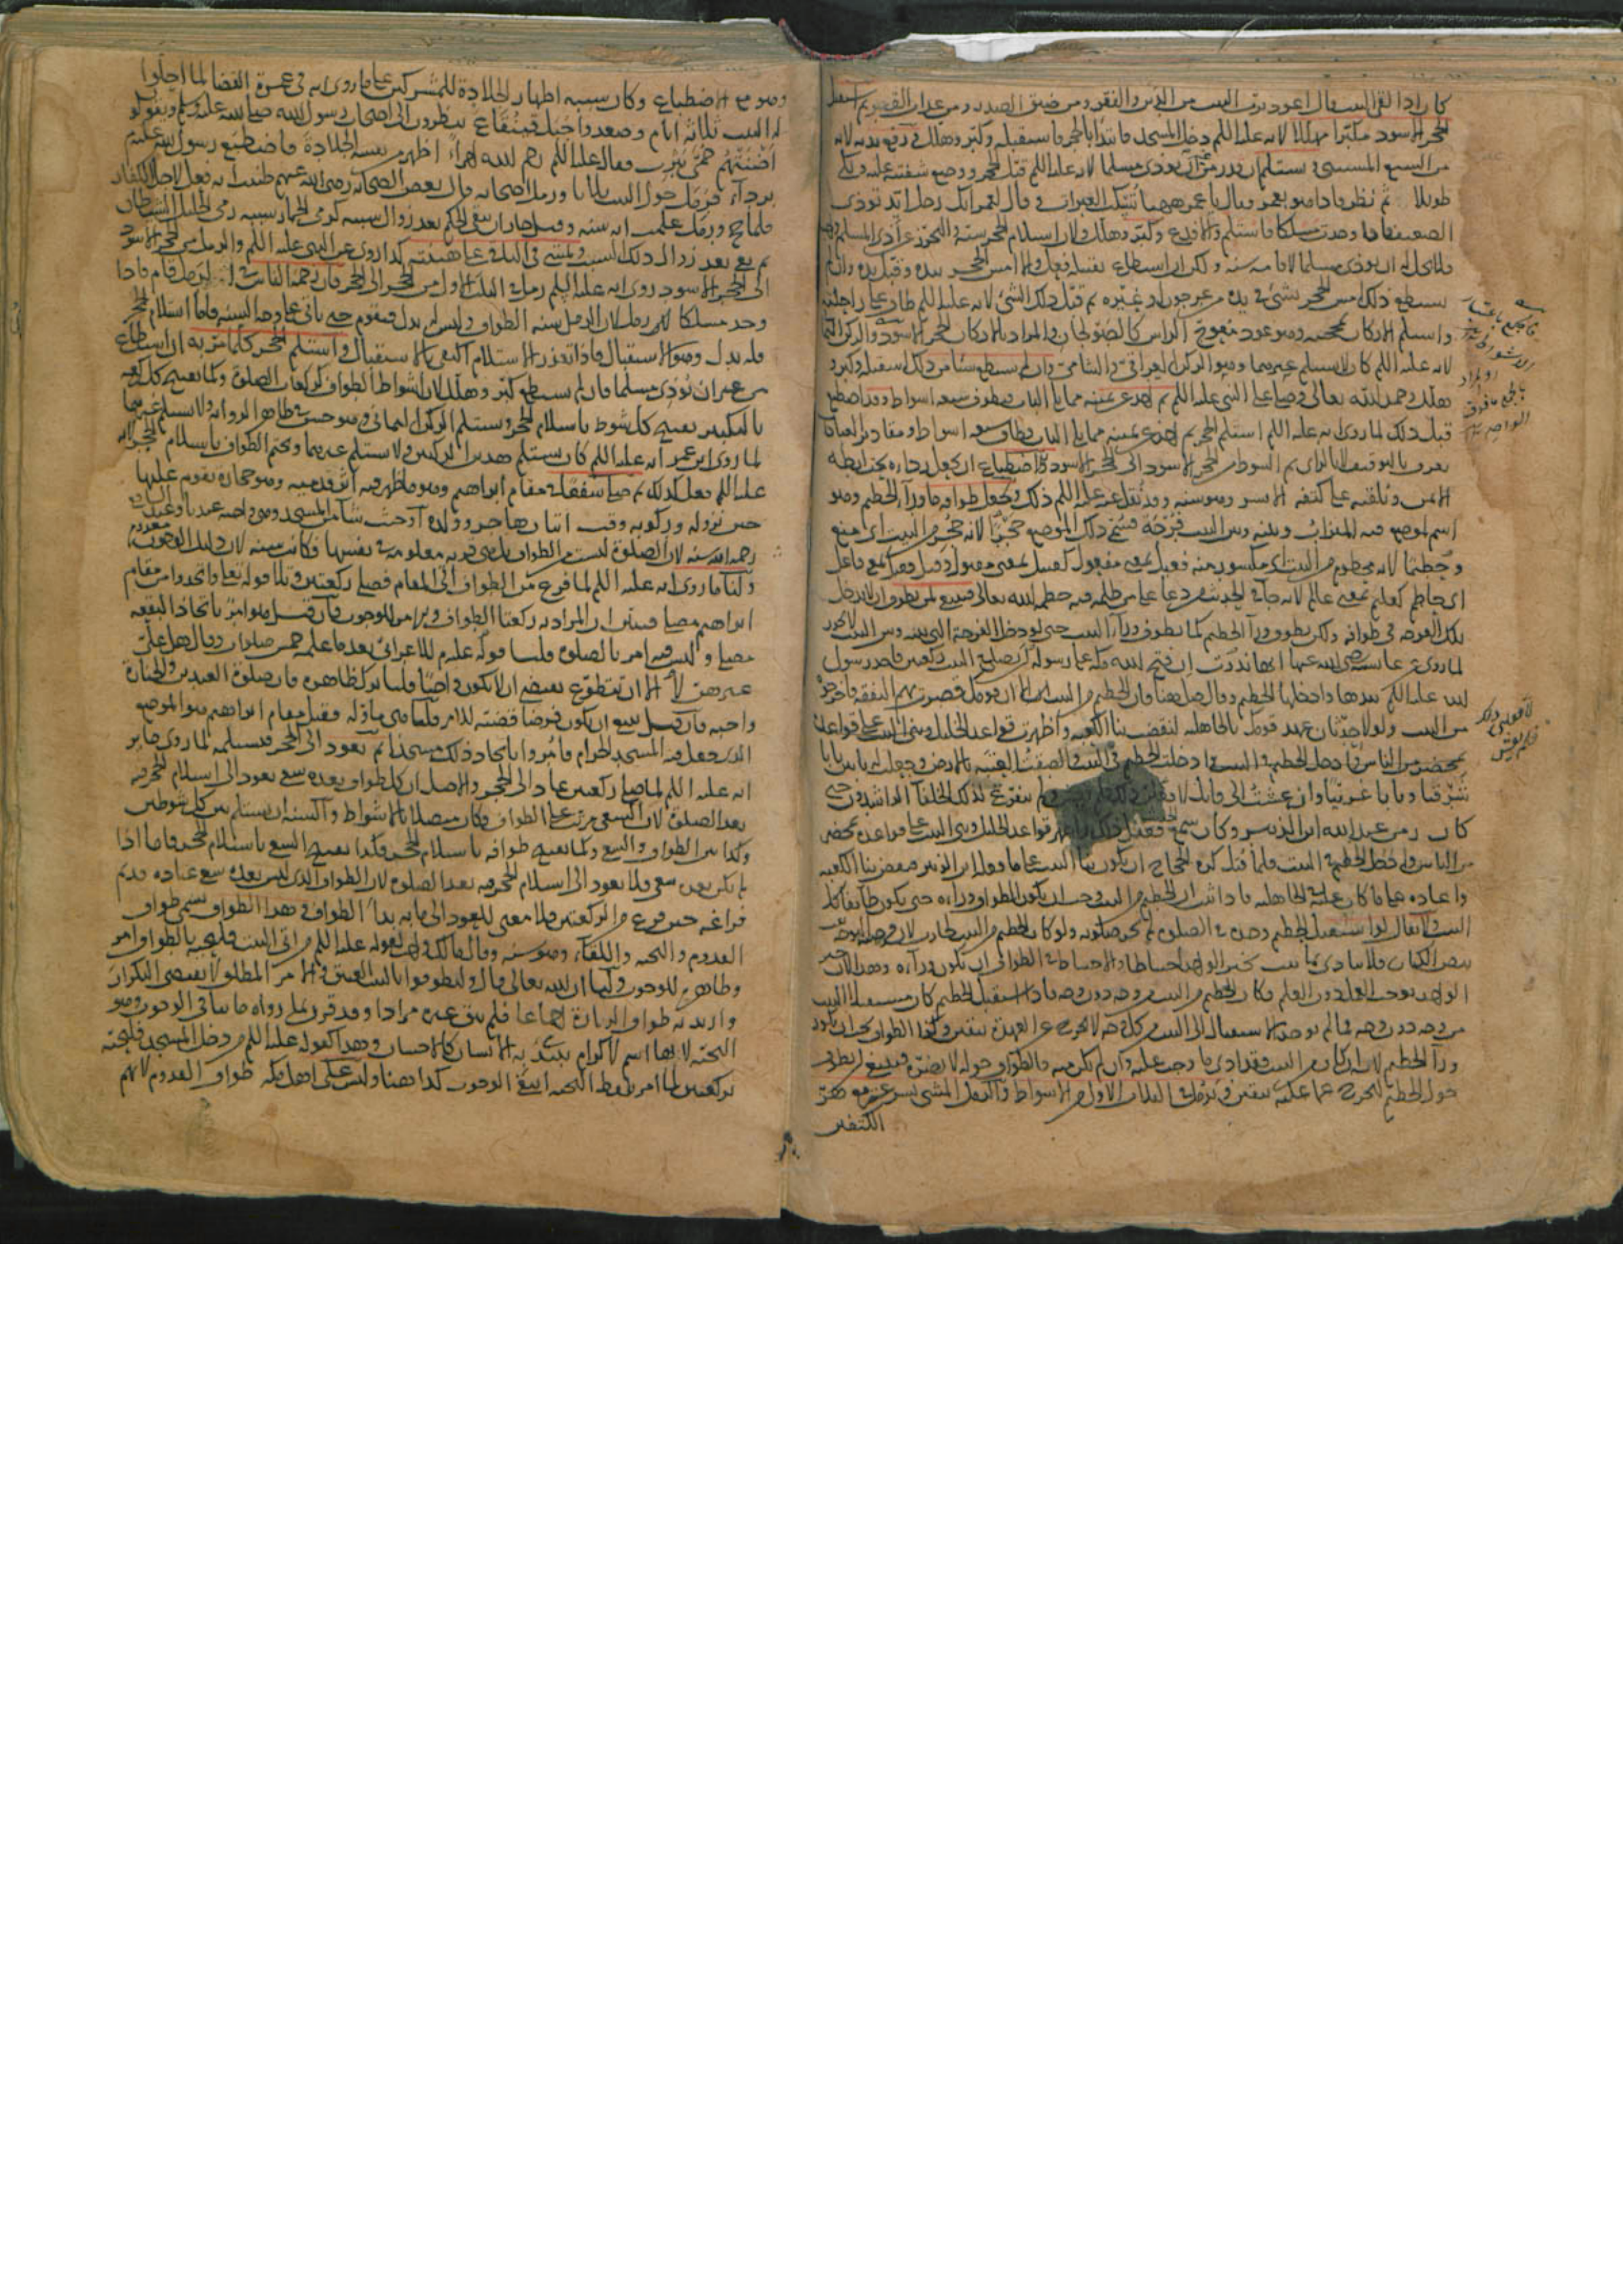 كان اذا لقى البيت يقول اعوذ برب البيت من الدين والفقر ومن ضيق الصدر ومن عذاب القبر ثم استقبل
الحجر الاسود مكبرا مهللا لانه عليه السلم دخل المسجد فابتدا بالحجر فاستقبله وكبر وهلل ويرفع يديه لانه
من السبع المستثنى ويستلم ان قدر من غير ان يوذى مسلما لانه عليه السلم قبل الحجر ووضع شفتيه عليه وبكى
طويلا ثم نظر فاذا هو بعمر فقال يا عمر ههنا تسكب العبرات وقال لعمر انك رجل ايد توذى
الضعيف فاذا وجدت مسلكا فاستلم والا فدع وكبر وهلل ولان استلام الحجر سنة والتحرز عن اذى المسلم واجب
فلا يحل له ان يوذى مسلما لاقامة سنة ولكن ان استطاع تقبيله فعل والا مس الحجر بيده وقبل يده وان لم
يستطع ذلك مس الحجر بشئ فى يده من عرجون او غيره ثم قبل ذلك الشئ لانه عليه السلم طاف على راحلته
واستلم الاركان بمحجنه وهو عود معوج الراس كالصولجان والمراد بالاركان الحجر الاسود والركن اليمانى
لانه عليه السلم كان لا يستلم غيرهما وهو الركن العراقى والشامى وان لم يستطع شيا من ذلك استقبل وكبر و
هلل وحمد الله تعالى وصلى على النبى عليه السلم ثم اخذ عن يمينه مما يلى الباب فيطوف سبعة اشواط وقد اضطبع
قبل ذلك لما روى انه عليه السلم استلم الحجر ثم اخذ عن يمينه مما يلى الباب فطاف سبعة اشواط ومقادير العبادات
تعرف بالتوقيف لا بالراى ثم الشوط من الحجر الاسود الى الحجر الاسود والاضطباع ان يجعل رداءه تحت ابطه
الايمن ويلقيه على كتفه الايسر وهو سنة وقد نقل عنه عليه السلم ذلك ويجعل طوافه من وراء الحطيم وهو
اسم لموضع فيه الميزاب وبينه وبين البيت فرجة فسمى ذلك الموضع حجرا لانه حجر من البيت اى منع
وحطيما لانه محطوم من البيت اى مكسور منه فعيل بمعنى مفعول كقتيل بمعنى مقتول وقيل فعيل بمعنى فاعل
اى حاطم كعليم بمعنى عالم لانه جاء فى الحديث من دعا على من ظلمه فيه حطمه الله تعالى فينبغى لمن يطوف ان لا يدخل
تلك الفرجة فى طوافه ولكن يطوف وراء الحطيم كما يطوف وراء البيت حتى لو دخل الفرجة التى بينه وبين البيت لا يجوز
لما روى عن عايشة رضى الله عنها انها نذرت ان فتح الله مكة على رسوله ان تصلى فى البيت ركعتين فاخذ رسول
الله عليه السلم بيدها وادخلها الحطيم وقال صلى ههنا فان الحطيم من البيت الا ان قومك قصرت بهم النفقة فاخرجوه
من البيت ولولا حدثان عهد قومك بالجاهلية لنقضت بناء الكعبة واظهرت قواعد الخليل وبنيت البيت على قواعده
بمحضر من الناس وادخل الحطيم فى البيت والصقت العتبة بالارض وجعلت له بابين بابا
شرقيا وبابا غربيا ولئن عشت الى قابل لافعلن ذلك فلم يعش ولم يتفرغ لذلك الخلفاء الراشدون حتى
كان زمن عبد الله ابن الزبير وكان سمع ففعل ذلك واظهر قواعد الخليل وبنى البيت على قواعده بمحضر
من الناس وادخل الحطيم فى البيت فلما قتل كره الحجاج ان يكون بناء البيت على ما فعله ابن الزبير فنقض بناء الكعبة
واعاده على ما كان عليه فى الجاهلية فاذا ثبت ان الحطيم من البيت وجب ان يكون الطواف وراءه حتى يكون طائفا بكل
البيت ولا يقال لو استقبل الحطيم وحده فى الصلوة لم يجز صلوته ولو كان الحطيم من البيت لجازت لان فرضية التوجه ثبت
بنص الكتاب فلا يتادى بما ثبت بخبر الواحد احتياطا والاحتياط فى الطواف ان يكون وراءه وهذا لان خبر
الواحد يوجب العمل دون العلم فكان الحطيم من البيت من وجه دون وجه فاذا استقبل الحطيم كان مستقبلا للبيت
من وجه دون وجه فما لم يوجد استقبال البيت من كل وجه لا يخرج عن العهدة بيقين وكذا الطواف يجب ان يكون
وراء الحطيم لانه ان كان من البيت فقد ادى ما وجب عليه وان لم يكن منه فالطواف حوله لا يضره فينبغى ان يطوف
حول الحطيم ليخرج عما عليه بيقين ويرمل فى الثلاث الاول من الاشواط والرمل المشى بسرعة مع هز
الكتفين
وهو مع الاضطباع وكان سببه اظهار الجلادة للمشركين على ما روى انه فى عمرة القضا لما اخلوا
له البيت ثلاثة ايام وصعدوا جبل قينقاع ينظرون الى اصحاب رسول الله صلى الله عليه وسلم ويقولون
اضنتهم حمى يثرب فقال عليه السلم رحم الله امرأ اظهر من نفسه الجلادة فاضطبع رسول الله عليه
برداءه فرمل حول البيت ثلاثا ورمل اصحابه قال بعض الصحابة رضى الله عنهم ظننت انه فعل لاجل الكفار
فلما حج ورمل علمت انه سنة وقيل جاز ان يبقى الحكم بعد زوال سببه كرمى الجمار سببه رمى الخليل الشيطان
ثم بقى بعد زوال ذلك السبب ويمشى فى الباقى على هينته كذا روى عن النبى عليه السلم والرمل من الحجر الاسود
الى الحجر الاسود روى انه عليه السلم رمل فى الثلث الاول من الحجر الى الحجر فان زحمه الناس فى الرمل قام فاذا
وجد مسلكا رمل لان الرمل سنة الطواف وليس له بدل فيقوم حتى ياتى على وجه السنة فاما استلام الحجر
فله بدل وهو الاستقبال فاذا تعذر الاستلام اكتفى بالاستقبال واستلم الحجر كلما مر به ان استطاع
من غير ان يوذى مسلما فان لم يستطع كبر وهلل لان اشواط الطواف كركعات الصلوة وكما يفتتح كل ركعة
بالتكبير يفتتح كل شوط باستلام الحجر ويستلم الركن اليمانى وهو حسن فى ظاهر الرواية ولا يستلم غيرهما
لما روى ابن عمر انه عليه السلم كان يستلم هذين الركنين ولا يستلم غيرهما ويختم الطواف باستلام الحجر لانه
عليه السلم فعل كذلك ثم صلى شفعا فى مقام ابراهيم وهو ما ظهر فيه اثر قدميه وهو حجارة يقوم عليها
حين نزوله وركوبه وقت اتيان هاجر وولده او حيث شاء من المسجد وهى واجبة عندنا وعند
رحمه الله سنة لان الصلوة ليست من الطواف بل هى قربة معلومة بنفسها فكانت سنة لان دليل الوجوب معدوم
ولنا ما روى انه عليه السلم لما فرغ من الطواف اتى المقام فصلى ركعتين وتلا قوله تعالى واتخذوا من مقام
ابراهيم مصلى فبين ان المراد به ركعتا الطواف والامر للوجوب فان قيل هو امر باتخاذ البقعة
مصلى وليس فيه امر بالصلوة قلنا قوله عليه السلم للاعرابى بعد ما علمه خمس صلوات وقال هل على
غيرهن لا الا ان تطوع يقتضى ان لا يكون واجبا قلنا ترك ظاهره فان صلوة العيدين والجنازة
واجبة فان قيل ينبغى ان يكون فرضا قضية للامر قلنا هى ماوله وقيل مقام ابراهيم هو الموضع
الذى جعل فيه المسجد الحرام فامروا باتخاذ ذلك مسجدا ثم يعود الى الحجر فيستلمه لما روى جابر
انه عليه السلم لما صلى ركعتين عاد الى الحجر والاصل ان كل طواف بعده سعى يعود الى استلام الحجر فيه
بعد الصلوة لان السعى مرتب على الطواف فكان متصلا بالاشواط والسنة ان يستلم بين كل شوطين
وكذا بين الطواف والسعى وكما يفتتح طوافه باستلام الحجر فكذا يفتتح السعى باستلام الحجر فاما اذا
لم يكن بعده سعى فلا يعود الى استلام الحجر فيه بعد الصلوة لان الطواف الذى ليس بعده سعى عبادة قد تم
فراغه حين فرغ من الركعتين فلا معنى للعود الى ما به بدأ الطواف وهذا الطواف يسمى طواف
القدوم والتحية واللقاء وهو سنة وقال مالك واجب لقوله عليه السلم من اتى البيت فليحيه بالطواف امر
وظاهره للوجوب ولنا ان الله تعالى قال وليطوفوا بالبيت العتيق والامر المطلق لا يقتضى التكرار
واريد به طواف الزيارة اجماعا فلم يبق غيره مرادا وقد قرن بما رواه ما ينافى الوجوب وهو
التحية لانها اسم لاكرام يبتدئ به الانسان كالاحسان وهذا كقوله عليه السلم من دخل المسجد فليحيه
بركعتين لما امر بلفظ التحية انتفى الوجوب كذا ههنا وليس على اهل مكة طواف القدوم لانهم